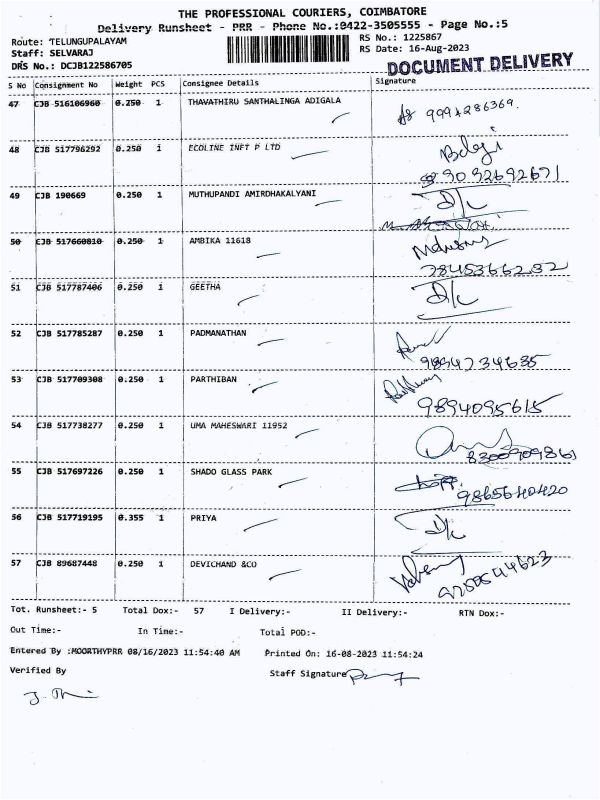 THE PROFESSIONAL COURIERS, COIMBATORE
Delivery Runsheet - PRR - Phone No.:0422-3505555 - Page No.:5
Route: TELUNGUPALAYAM RS No.: 1225867
Staff: SELVARAJ RS Date: 16-Aug-2023
DRS No.: DCJB122586705 DOCUMENT DELIVERY
S No Consignment No Weight PCS Consignee Details Signature
47 CJB 516106960 0.250 1 THAVATHIRU SANTHALINGA ADIGALA
9994286369.
48 CJB 517796292 0.250 1 ECOLINE INFT P LTD Balaji
9092692671
49 CJB 190669 0.250 1 MUTHUPANDI AMIRDHAKALYANI D/c
50 CJB 517660810 0.250 1 AMBIKA 11618
7845366232
51 CJB 517787406 0.250 1 GEETHA D/c
52 CJB 517785287 0.250 1 PADMANATHAN
9894734685
53 CJB 517709308 0.250 1 PARTHIBAN
9894095615
54 CJB 517738277 0.250 1 UMA MAHESWARI 11952
8300909861
55 CJB 517697226 0.250 1 SHADO GLASS PARK
9865640420
56 CJB 517719195 0.355 1 PRIYA D/c
57 CJB 89687448 0.250 1 DEVICHAND &CO
Tot. Runsheet:- 5 Total Dox:- 57 I Delivery:- II Delivery:- RTN Dox:-
Out Time:- In Time:- Total POD:-
Entered By :MOORTHYPRR 08/16/2023 11:54:40 AM Printed On: 16-08-2023 11:54:24
Verified By Staff Signature